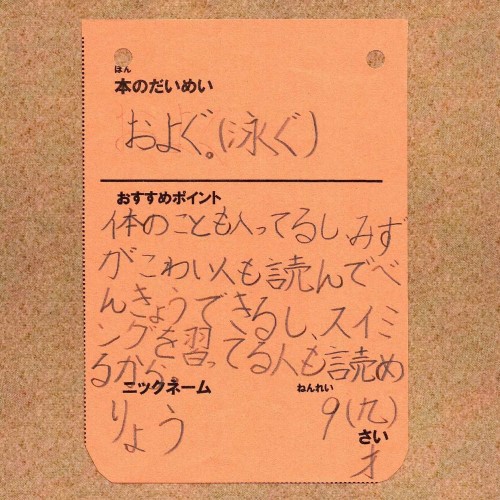 ほん
本のだいめい
およぐ。(泳ぐ)
おすすめポイント
体のことも入ってるし、みず
がこわい人も読んでべ
んきょうできるし、スイミ
ングを習ってる人も読め
るから
ニックネーム
ねんれい
りょう
9(九)
さい
才